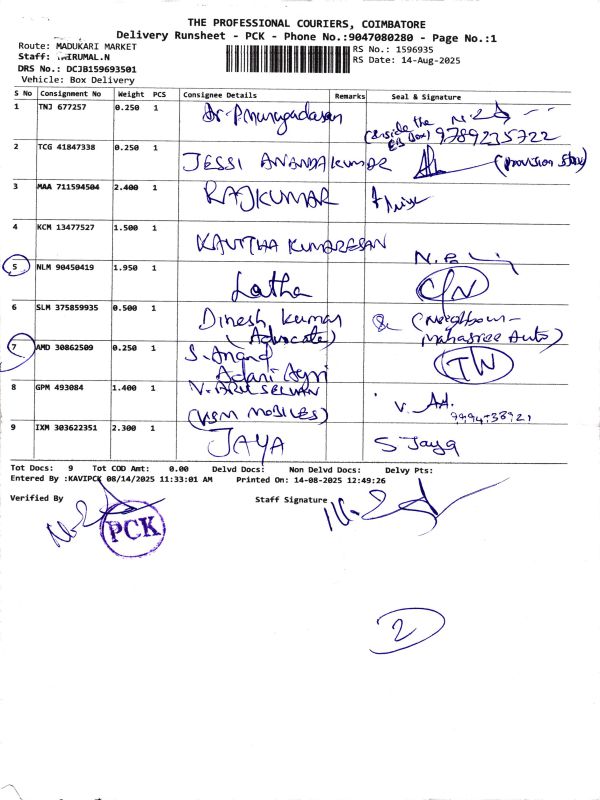 THE PROFESSIONAL COURIERS, COIMBATORE
Delivery Runsheet - PCK - Phone No.:9047080280 - Page No.:1
Route: MADUKARI MARKET
Staff: THIRUMAL.N
DRS No.: DCJB159693501
Vehicle: Box Delivery
RS No.: 1596935
RS Date: 14-Aug-2025
S No Consignment No Weight PCS Consignee Details Remarks Seal & Signature
1 TNJ 677257 0.250 1 Dr. P. Murugadasan (Inside the EB Box) 9789235722
2 TCG 41847338 0.250 1 JESSI ANANDAKUMAR (Provision Store)
3 MAA 711594504 2.400 1 RAJKUMAR
4 KCM 13477527 1.500 1 KAVITHA KUMARESAN
5 NLM 90450419 1.950 1 Latha
6 SLM 375859935 0.500 1 Dinesh Kumar (Advocate) (Neighbour - Mahasree Auto)
7 AMD 30862509 0.250 1 S. Anand Adani Agri TW
8 GPM 493084 1.400 1 V. ARULSELVAN (VSM MOBILES)
9 IXM 303622351 2.300 1 JAYA S Jaya
Tot Docs: 9 Tot COD Amt: 0.00 Delvd Docs: Non Delvd Docs: Delvy Pts:
Entered By :KAVIPCK 08/14/2025 11:33:01 AM Printed On: 14-08-2025 12:49:26
Verified By
Staff Signature
PCK
2